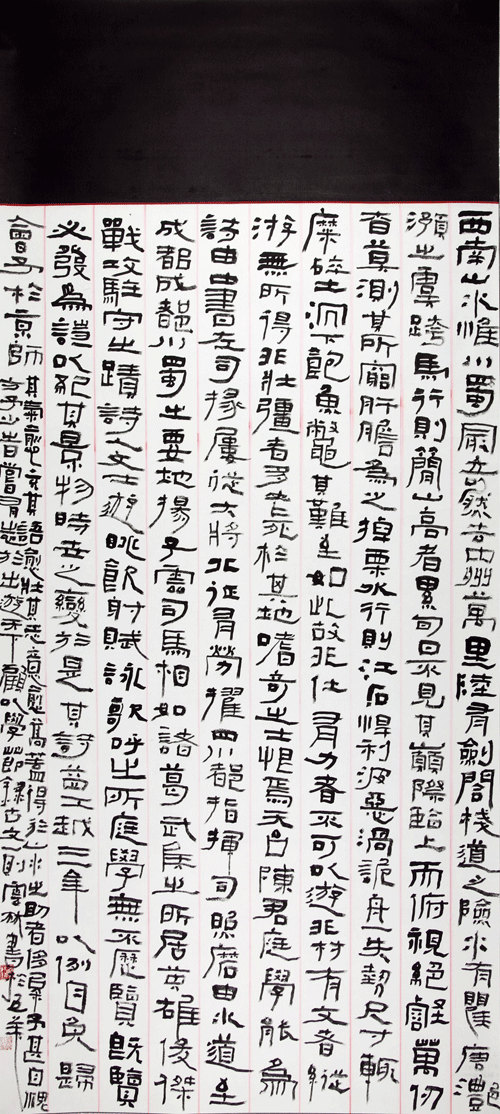 西南山水惟川蜀最奇然去中州萬里陸有劍閣棧道之險水有瞿唐灩
澦之虞跨馬行則簡山高者累旬日不見其巔際臨上而俯視絕壑萬仞
杳莫測其所窮肝膽為之掉栗水行則江石悍利波惡渦詭舟一失勢尺寸輒
糜碎土沉下飽魚鼈其難至如此故非仕有力者不可以遊非材有文者縱
游無所得非壯彊者多老死於其地嗜奇之士恨焉天台陳君庭學能為
詩由中書左司掾屢從大將北征有勞擢四川都指揮司照磨由水道至
成都成都川蜀之要地揚子雲司馬相如諸葛武侯之所居英雄俊傑
戰攻駐守之蹟詩人文士遊眺飲射賦詠歌呼之所庭學無不歷覽既覽
必發為詩以紀其景物時世之變於是其詩益工越三年以例自免歸
會予於京師
其氣愈充其語愈壯其志意愈高蓋得於山水之助者侈矣予甚自愧
方予少時嘗有志於出遊天下顧以學節錄古文一則雲林書於年